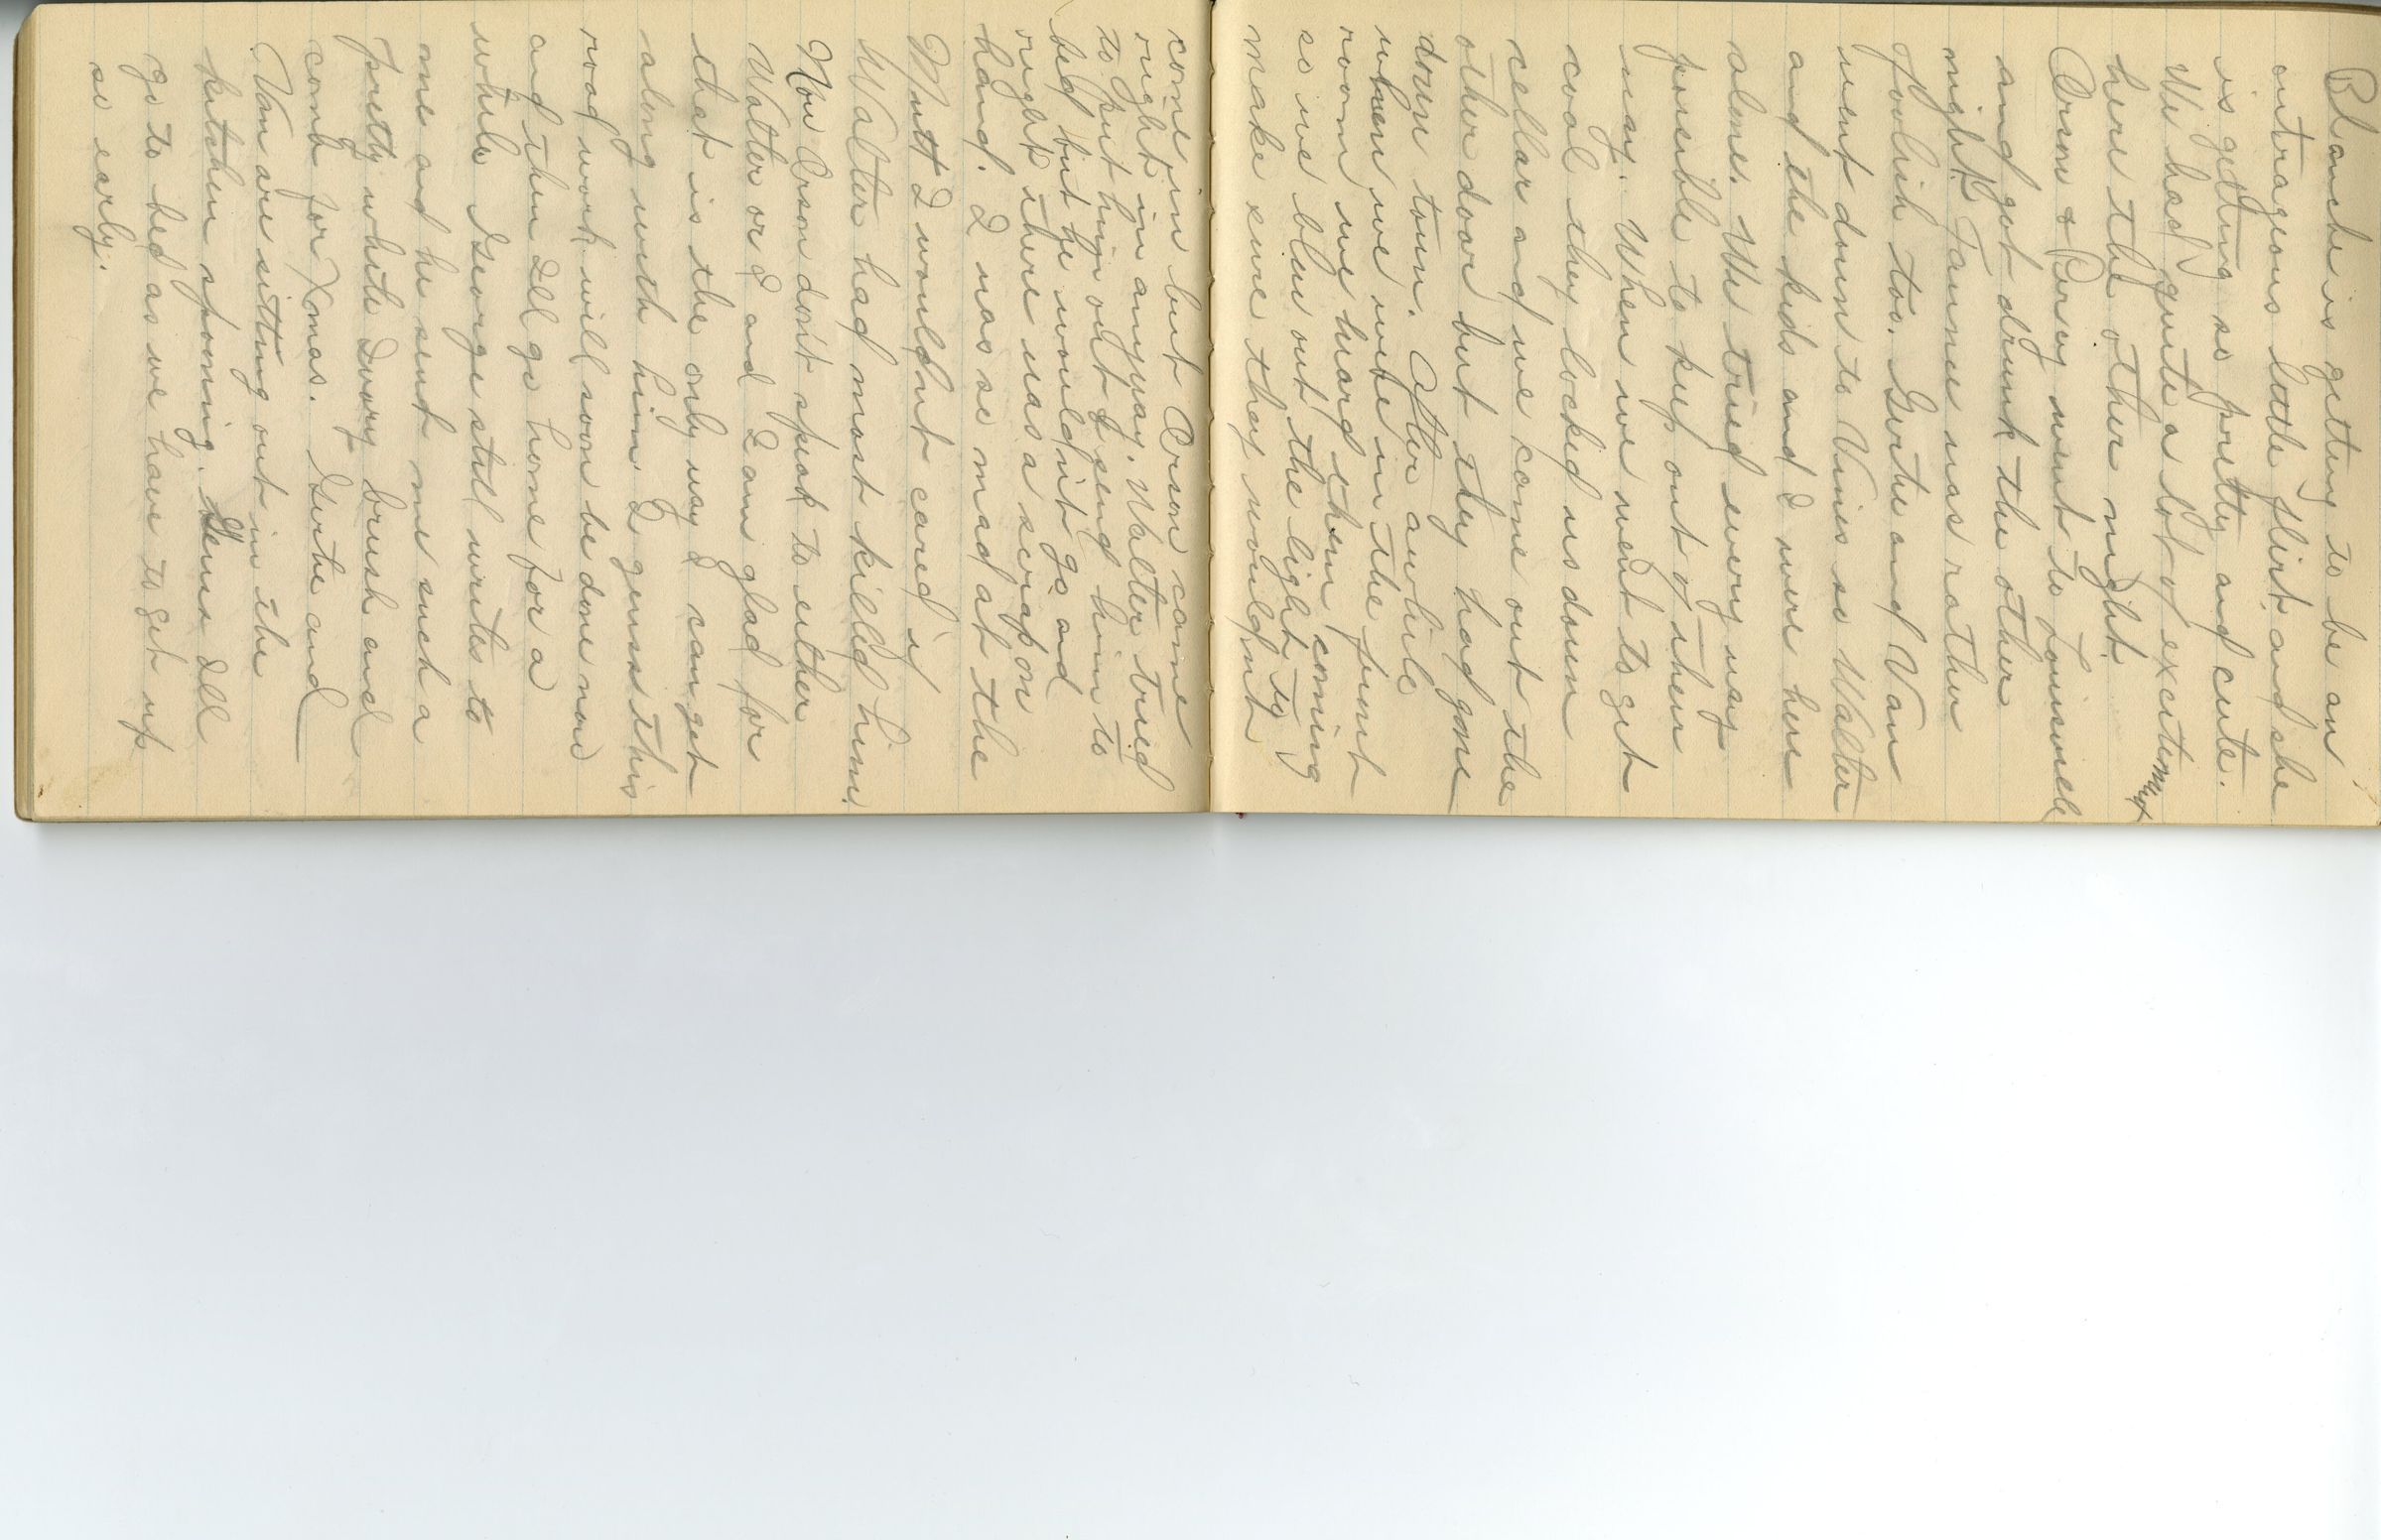 Blanche is getting to be an
outrageous little flirt and she
is getting so pretty and cute.
We had quite a lot of excitement
here the other night.
Orson & Percy went to Louisville
and got drunk the other
night. Fannie was rather
foolish too. Gertie and Van
went down to Vinies so Walter
and the kids and I were here
alone. We tried every way
possible to keep out of their
way. When we went to get
coal they locked us down
cellar and we came out the
other door but they had gone
down town. After awhile
when we were in the front
room we heard them coming
so we blew out the light to
make sure they wouldnt
come in but Orson came
right in anyway. Walter tried
to put him out & send him to
bed but he wouldn't go and
right there was a scrap on
hand. I was so mad at the
Mutt I wouldnt cared if
Walter had most killed him.
Now Orson don't speak to either
Walter or I and I am glad for
that is the only way I can get
along with him I guess this
road work will soon be done now
and then Ill go home for a
while George still writes to
me and he sent me such a
pretty white Ivory brush and
comb for Xmas. Gertie and
Van are sitting out in the
kitchen spooning. Guess Ill
go to bed as we have to get up
so early.